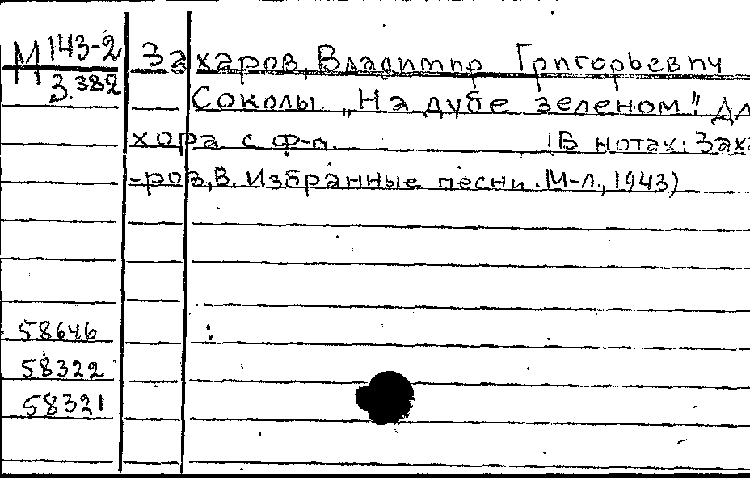 М 143-2
3.382
Захаров, Владимир Григорьевич
Соколы. „На дубе зеленом." Дл
хора с ф-п. (В нотах: Заха
-ров, В. Избранные песни. М-Л., 1943)
58646
58322
58321